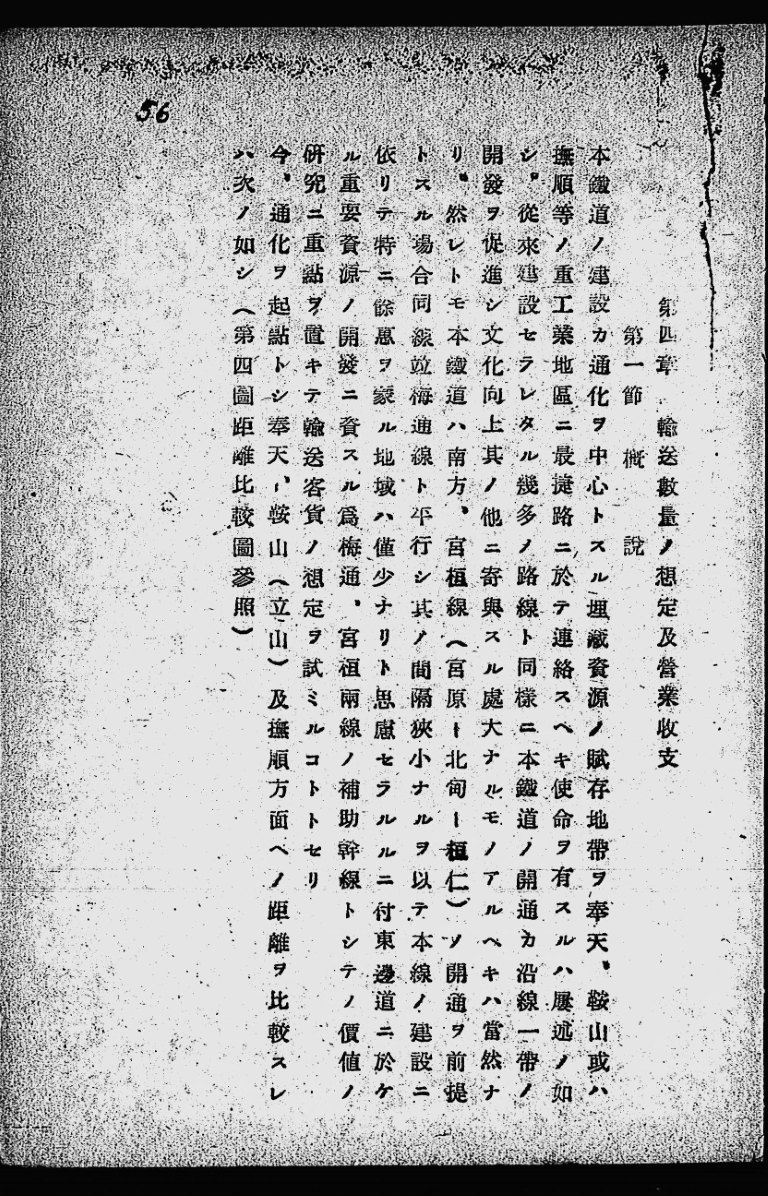 56
第四章 輸送數量ノ想定及營業收支
第一節 槪說
本鐵道ノ建設カ通化ヲ中心トスル埋藏資源ノ賦存地帶ヲ奉天、鞍山或ハ
撫順等ノ重工業地區ニ最捷路ニ於テ連絡スヘキ使命ヲ有スルハ屢述ノ如
シ。從來建設セラレタル幾多ノ路線ト同樣ニ本鐵道ノ開通カ沿線一帶ノ
開發ヲ促進シ文化向上其ノ他ニ寄與スル處大ナルモノアルヘキハ當然ナ
リ。然レトモ本鐵道ハ南方、宮桓線（宮原ー北甸ー桓仁）ノ開通ヲ前提
トスル場合同線竝梅通線ト平行シ其ノ間隔狹小ナルヲ以テ本線ノ建設ニ
依リテ特ニ餘惠ヲ蒙ル地域ハ僅少ナリト思慮セラルルニ付東邊道ニ於ケ
ル重要資源ノ開發ニ資スル爲梅通、宮桓兩線ノ補助幹線トシテノ價値ノ
硏究ニ重點ヲ置キテ輸送客貨ノ想定ヲ試ミルコトトセリ
今、通化ヲ起點トシ奉天、鞍山（立山）及撫順方面ヘノ距離ヲ比較スレ
ハ次ノ如シ（第四圖距離比較圖參照）